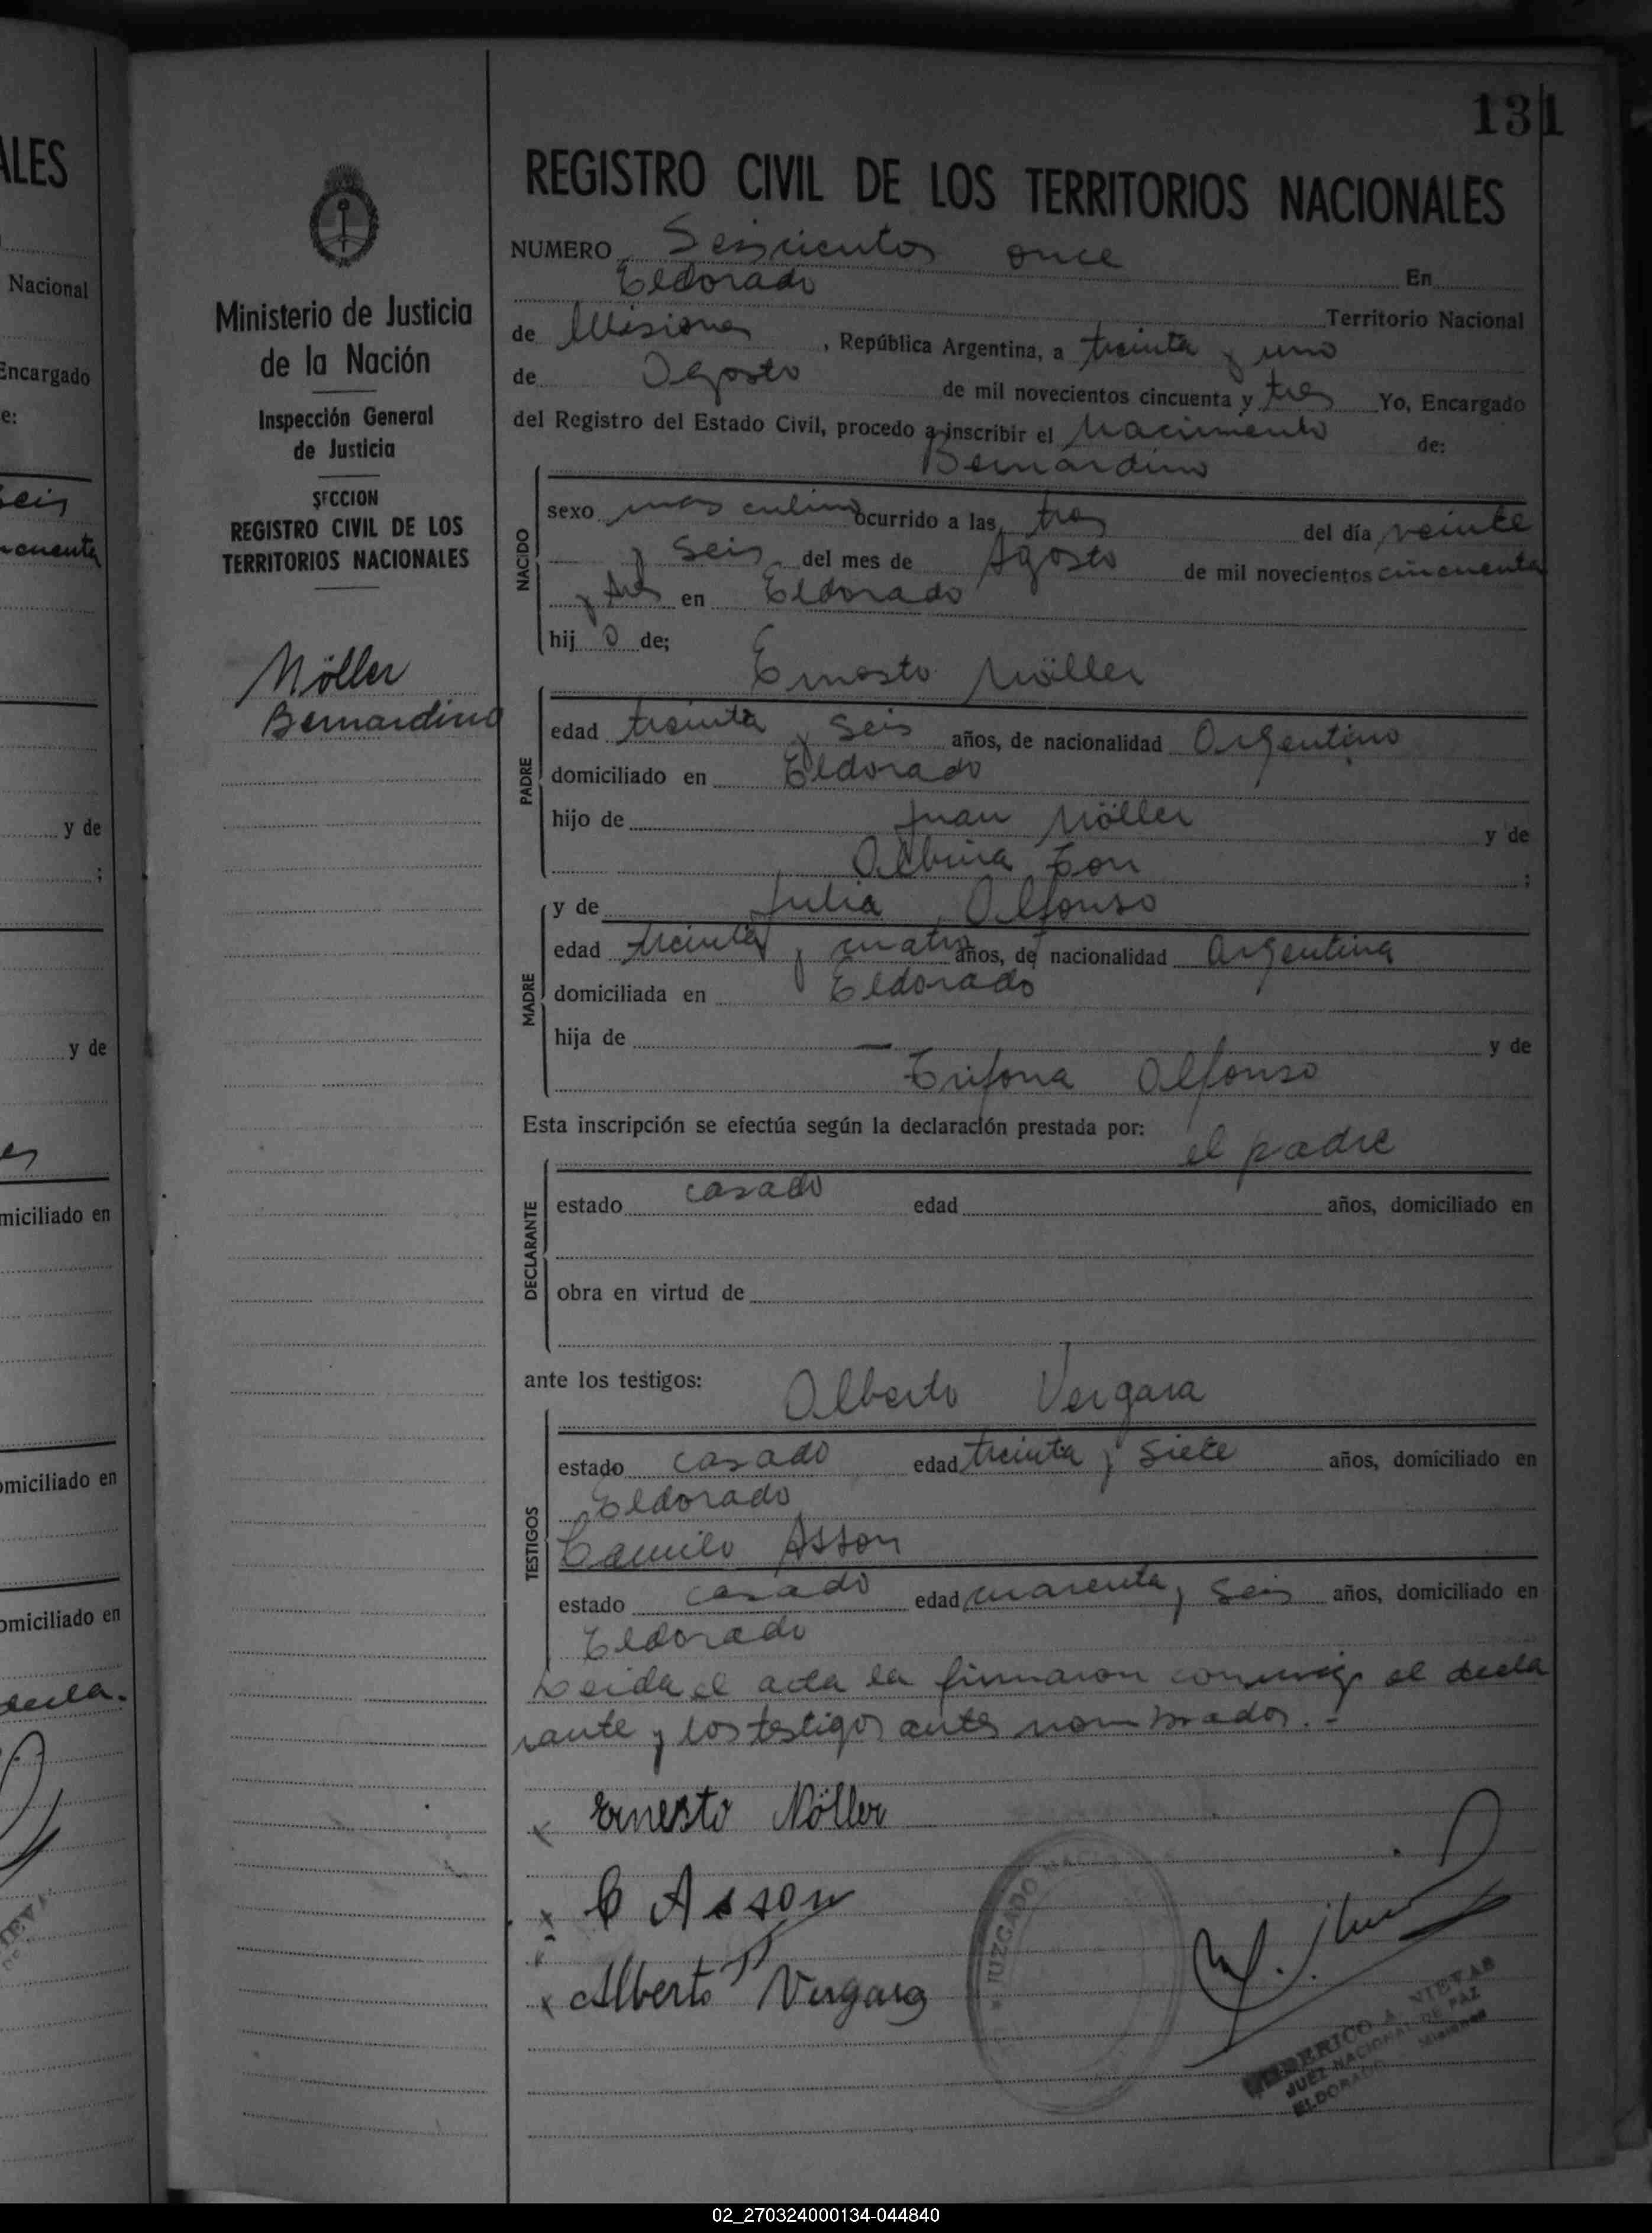 131
ALES
Nacional
Encargado
e:
seis
ncuenta
y de
;
y de
es
miciliado en
omiciliado en
omiciliado en
decla.
Ministerio de Justicia
de la Nación
Inspección General
de Justicia
SECCION
REGISTRO CIVIL DE LOS
TERRITORIOS NACIONALES
Möller
Bernardino
REGISTRO CIVIL DE LOS TERRITORIOS NACIONALES
NUMERO Seiscientos once En
Eldorado Territorio Nacional
de Misiones, República Argentina, a treinta y uno
de Agosto de mil novecientos cincuenta y tres Yo, Encargado
del Registro del Estado Civil, procedo a inscribir el Nacimiento de:
Bernardino
NACIDO
sexo masculino ocurrido a las tres del día veinte
y seis del mes de Agosto de mil novecientos cincuenta
y tres en Eldorado
hij o de;
Ernesto Möller
PADRE
edad treinta y seis años, de nacionalidad Argentino
domiciliado en Eldorado
hijo de Juan Möller y de
Albina Zon ;
MADRE
y de Julia Alfonso
edad treinta y cuatro años, de nacionalidad Argentina
domiciliada en Eldorado
hija de — y de
Trifona Alfonso
Esta inscripción se efectúa según la declaración prestada por:
el padre
DECLARANTE
estado casado edad años, domiciliado en
obra en virtud de
ante los testigos:
Alberto Vergara
TESTIGOS
estado casado edad treinta y siete años, domiciliado en
Eldorado
Camilo Asson
estado casado edad cuarenta y seis años, domiciliado en
Eldorado
Leida el acta la firmaron conmigo el decla
rante y los testigos antes nombrados.-
x Ernesto Möller
x C Asson
x Alberto Vergara
JUZGADO NACI
FEDERICO A. NIEVAS
JUEZ NACIONAL DE PAZ
ELDORADO Misiones
02_270324000134-044840